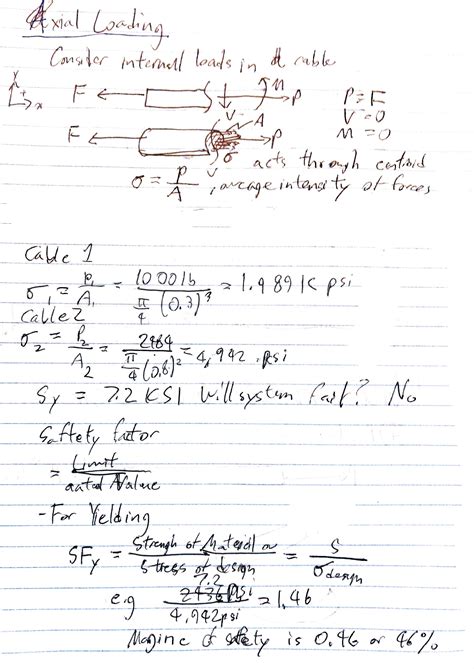 Axial Loading
Consider internal loads in cable
Y
x
F P V M P = F
V = 0
F A P M = 0
σ V acts through centroid
σ = P/A , average intensity of forces
Cable 1
σ₁ = P₁/A₁ = 1000 lb / (π/4 (0.3)³) = 1.989 K psi
Cable 2
σ₂ = P₂/A₂ = 2484 / (π/4 (0.8)²) = 4,942 psi
Sy = 7.2 KSI Will system fail? No
Saftety factor
= Limit / Value
- For Yielding
SFy = Strength of Material / stress of design = S / σ design
e.g 7.2 / 4,942 psi = 1.46
Magine of safety is 0.46 or 46%